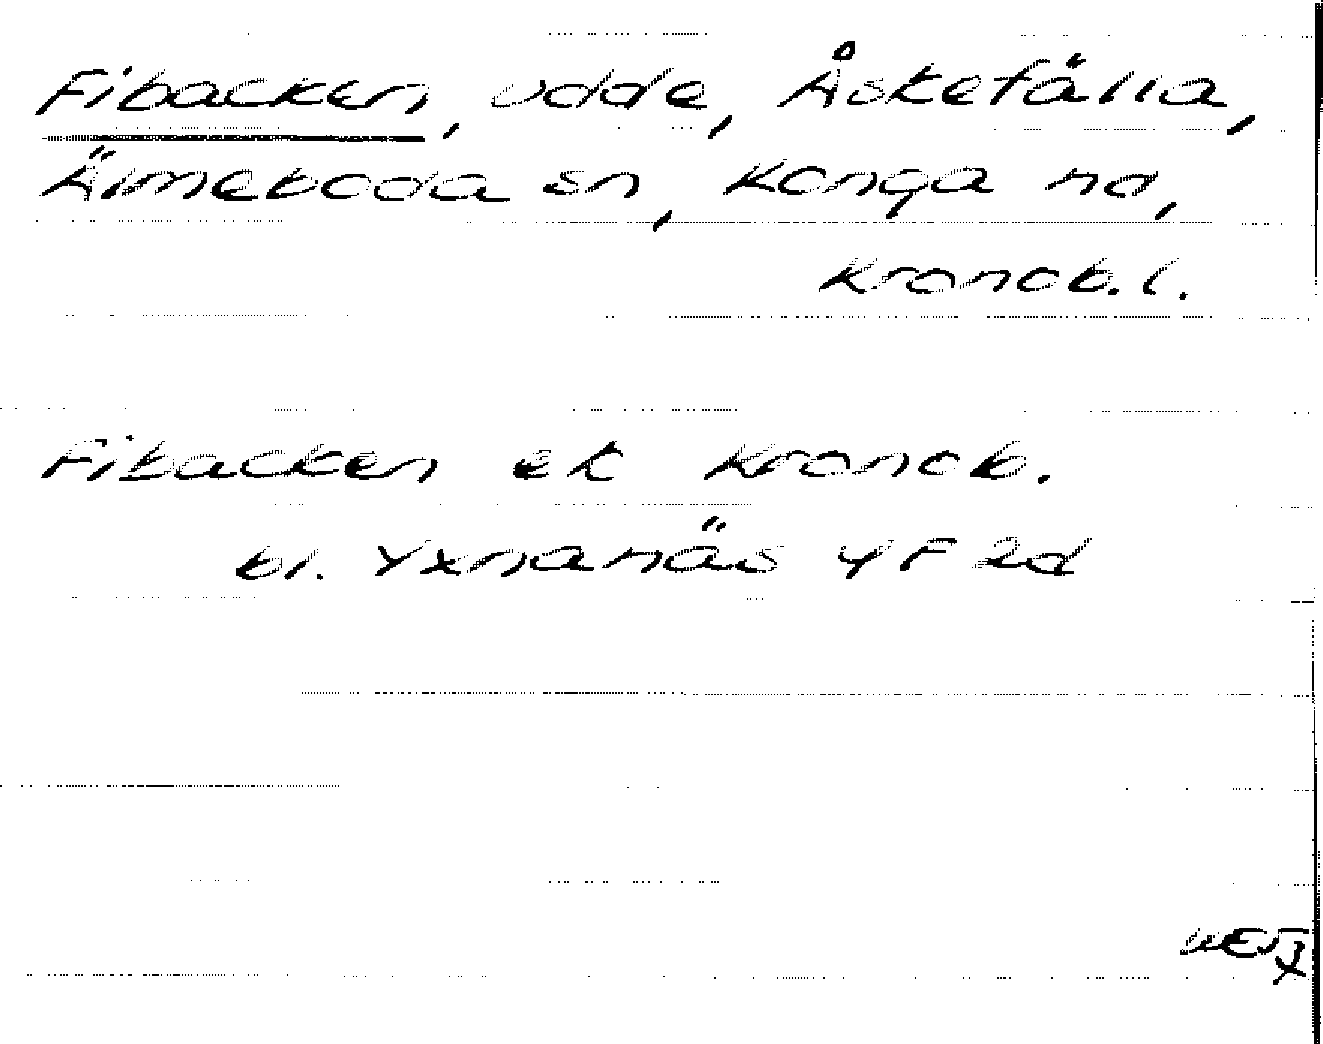 Fibacken, udde, Åskefälla,
Älmeboda sn, Konga hd,
Kronob. l.
Fibacken ek Kronob.
bl. Yxnanäs 4F 2d